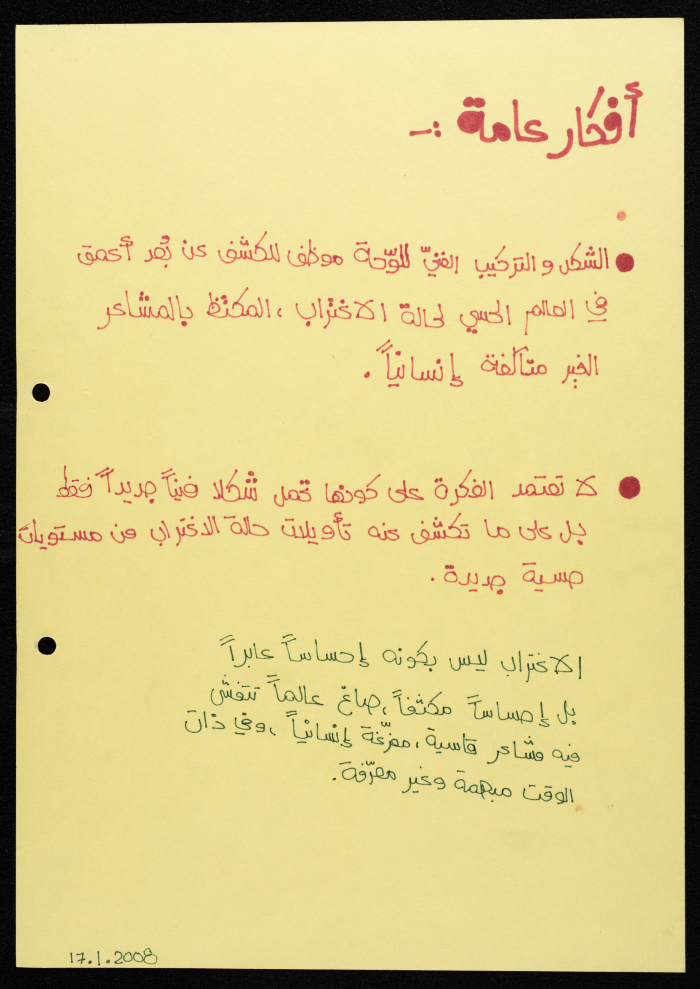 أفكار عامة :-
● الشكل والتركيب الفنيّ للوّحة موظف للكشف عن بُعد أعمق
في العالم الحسي لحالة الاغتراب ، المكتظ بالمشاعر
الغير متآلفة إنسانياً .
● لا تعتمد الفكرة على كونها تحمل شكلا فنياً جديداً فقط
بل على ما تكشف عنه تأويلات حالة الاغتراب من مستويات
حسية جديدة .
الاغتراب ليس بكونه إحساساً عابراً
بل إحساساً مكثفاً ، صاغ عالماً تتفشى
فيه مشاعر قاسية ، مفرّغة إنسانياً ، وفي ذات
الوقت مبهمة وغير معرّفة .
17.1.2008